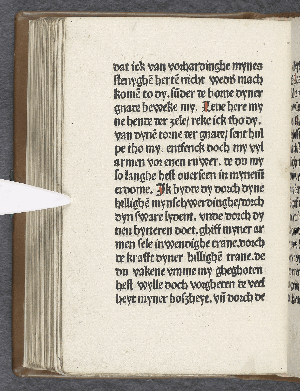 dat ick van vorhardinghe mynes
stenyghē hertē nicht wedd mach
komē to dy. sūder te bome dyner
gnare beweke my. Lene here my
ne hente ter zele / reke ick tho dy.
van dynē torne ter gnare / sent hul
pe tho my. entfenck doch my vyl
armen vor enen ruwer. te du my
so langhe hest ouersem in mynem
erdome. Ik bydde dy dorch dyne
hillighē mynschwerdinghe / dorch
dyn sware lydent. vnde dorch dy
nen bytteren doet. ghiff myner ar
men sele inwendighe trane. dorch
te krafft dyner hillighē trane. de
du vakene vmme my gheghoten
hest wylle doch vorgheten te veel
heyt myner boszheyt. vñ dorch de